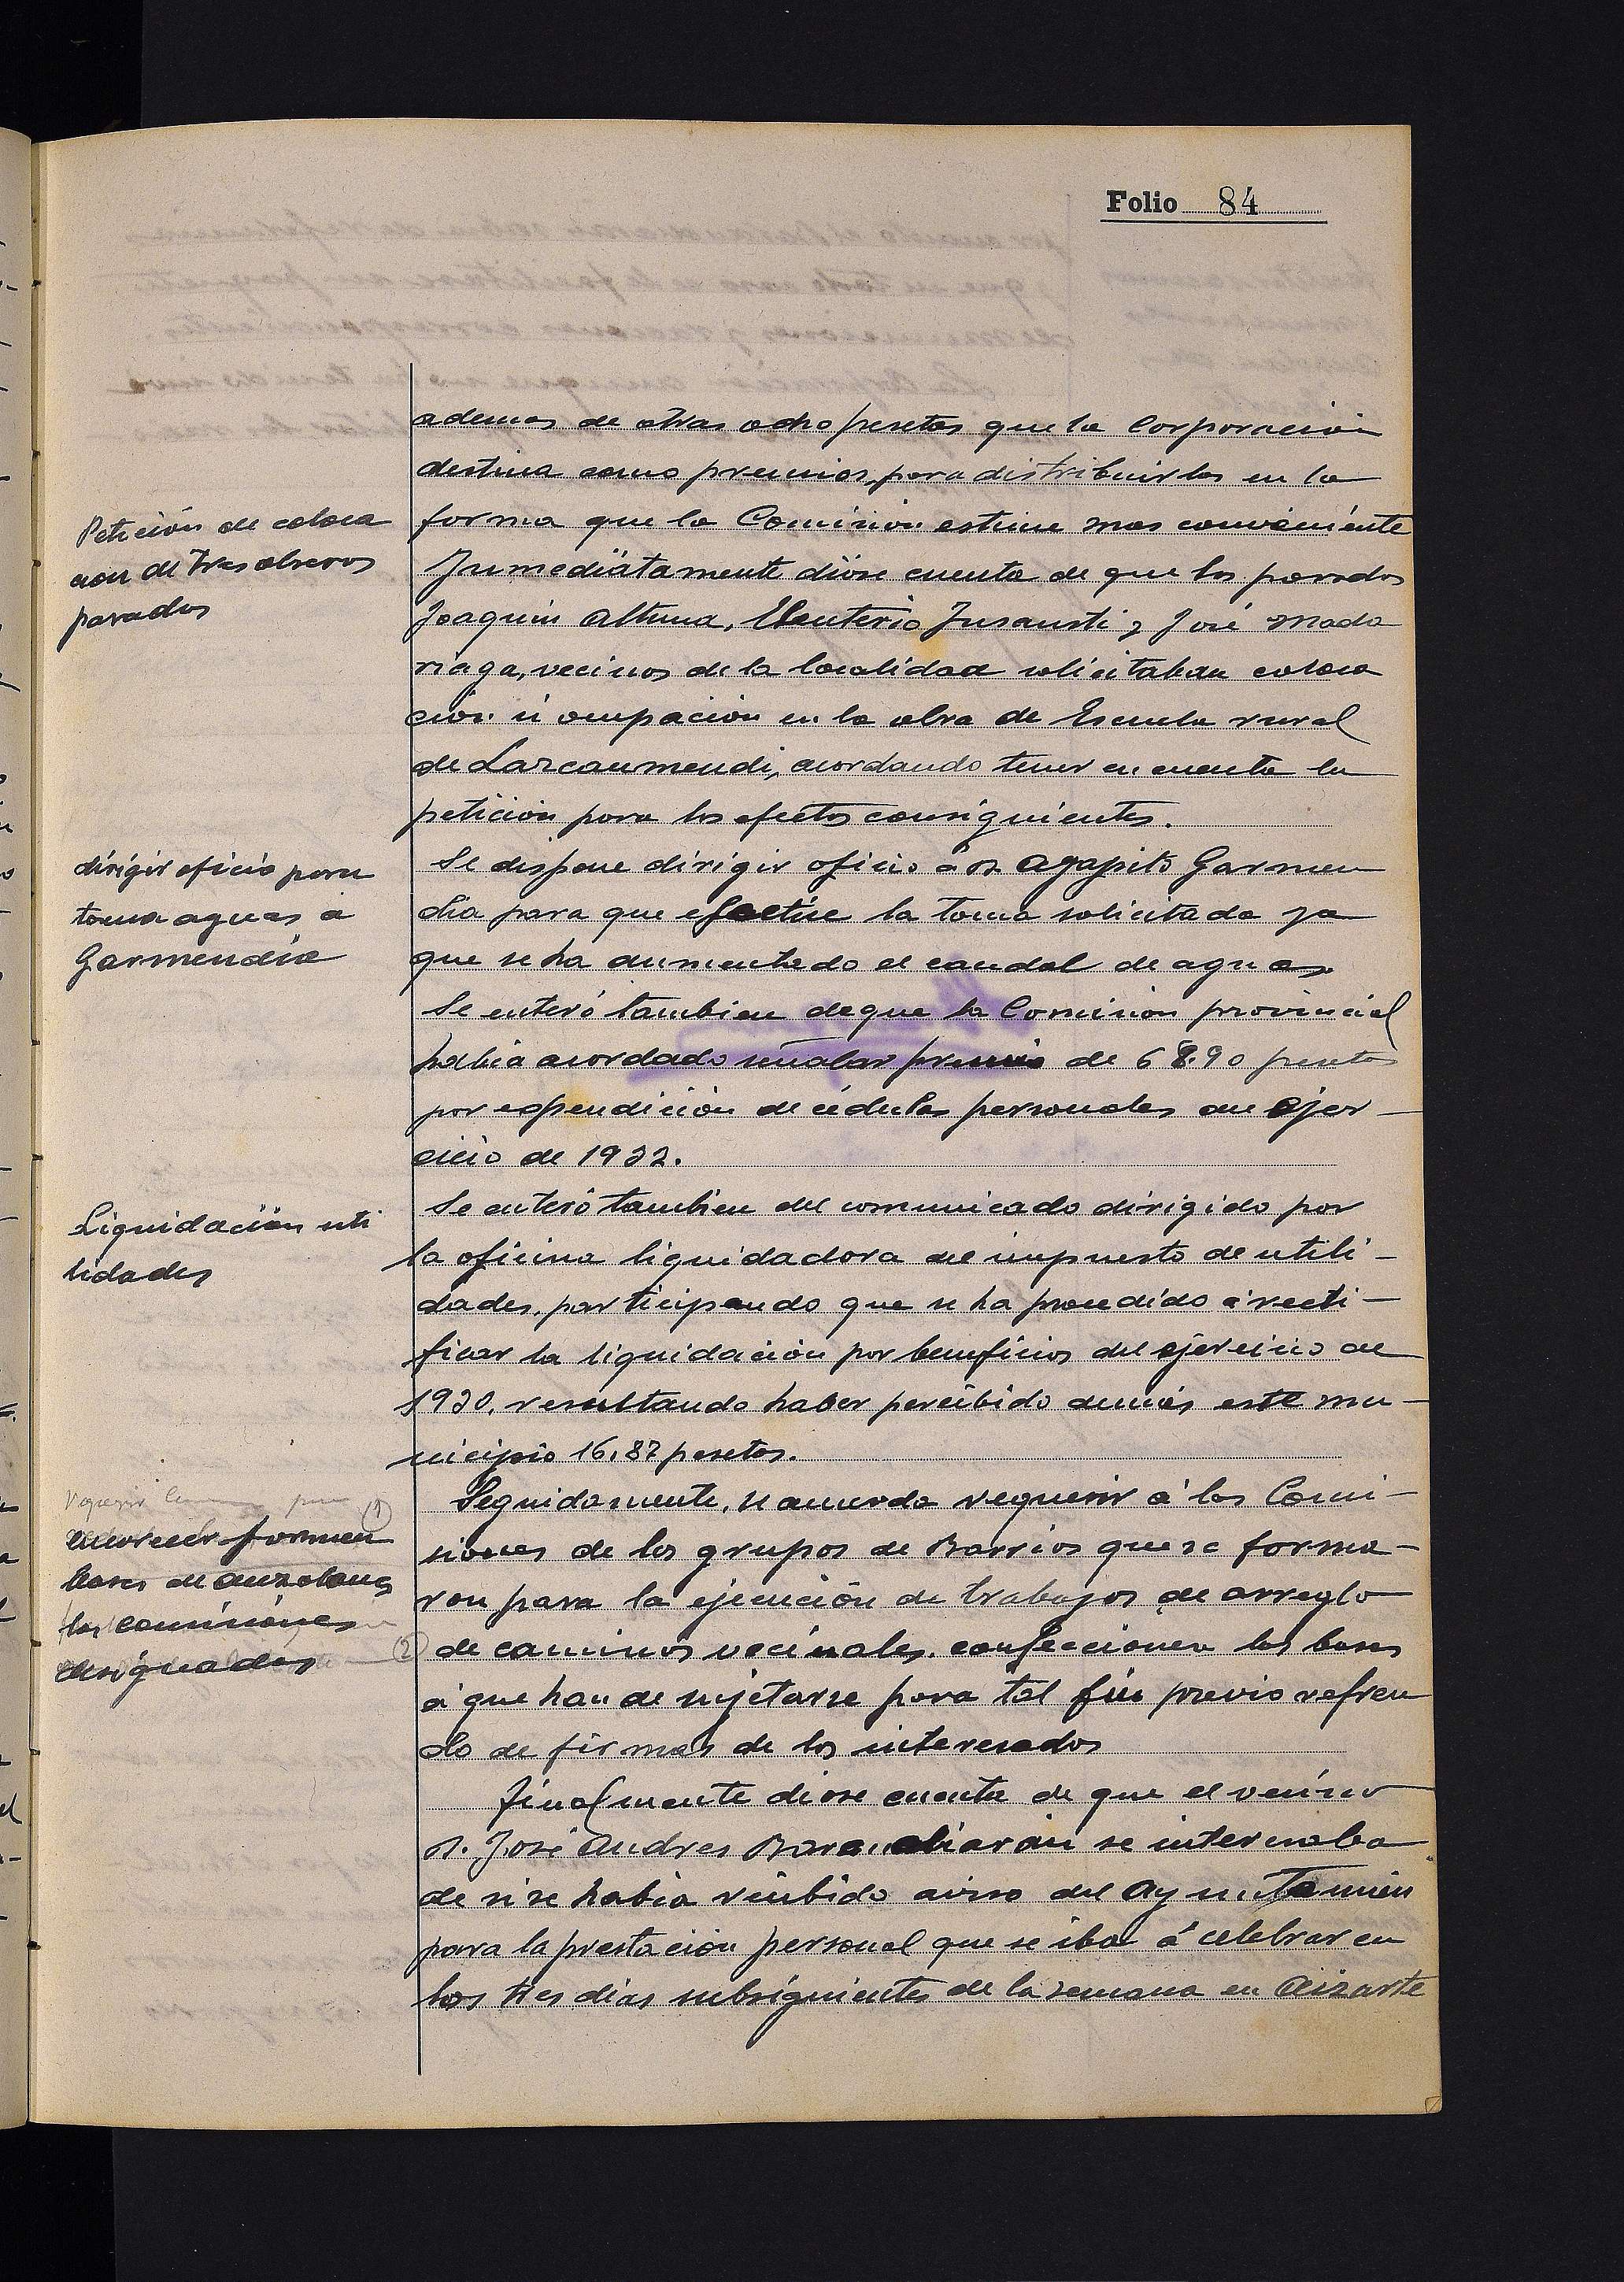 Folio 84
ademas de otras ocho pesetas que la Corporación
destina como premios, para distribuirlos en la
forma que la Comisión estime mas conveniente
Petición de coloca
cion de tres obreros
parados
Inmediatamente dióse cuenta de que los parados
Joaquin Altuna, Eleuterio Insausti y José Mada
riaga, vecinos de la localidad solicitaban coloca
ción ú ocupación en la obra de Escuela rural
de Lazcaumendi, acordando tener en cuenta la
petición para los efectos consiguientes.
dirigir oficio para
toma aguas a
Garmendia
Se dispone dirigir oficio á D. Agapito Garmen
dia para que efectúe la toma solicitada ya
que se ha aumentado el caudal de aguas.
Se enteró tambien de que la Comisión provincial
había acordado señalar premio de 68.90 pesetas
por expendición de cédulas personales en ejer-
cicio de 1932.
Liquidación uti
lidades
Se enteró tambien del comunicado dirigido por
la oficina liquidadora del impuesto de utili-
dades, participando que se ha procedido á recti-
ficar la liquidación por beneficios del ejercicio de
1930, resultando haber percibido demás este mu-
nicipio 16,87 pesetas.
(1)
formen
bases de auzolanes
las comisiones
(2)
designadas
Seguidamente, se acuerda requerir á las Comi-
siones de los grupos de Barrios que se forma-
ron para la ejecución de trabajos de arreglo
de caminos vecinales, confeccionen las bases
á que han de sujetarse para tal fin previo refren
do de firmas de los interesados
Finalmente dióse cuenta de que el vecino
D. José Andres se interesaba
de si se había recibido aviso del Ayuntamien
para la prestación personal que se iba á celebrar en
los tres días subsiguientes de la semana en Aizarte